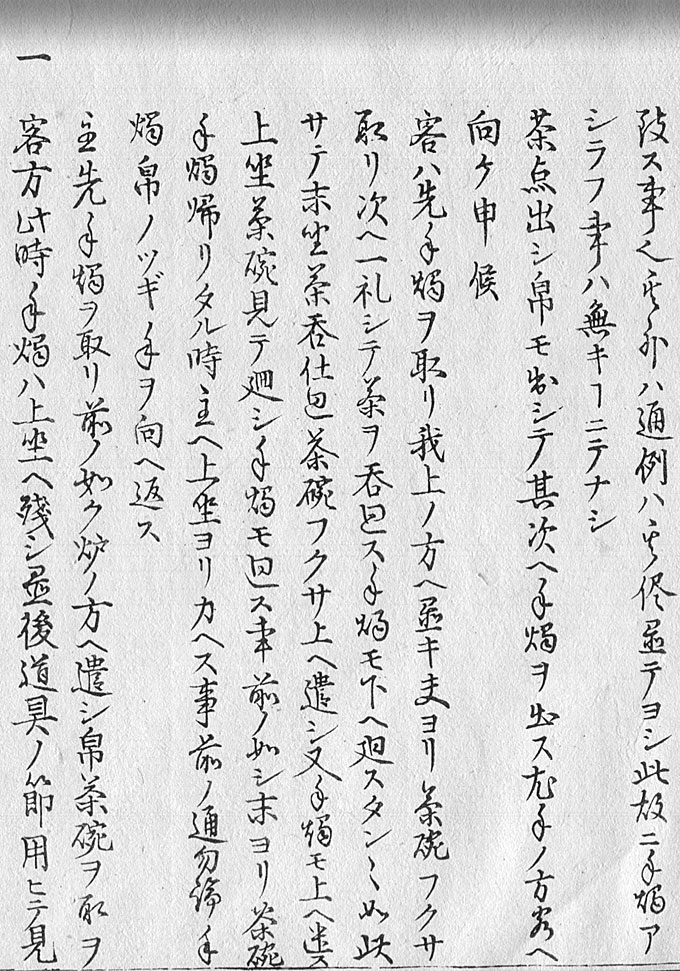 致ス事也其外ハ通例ハ其侭置テヨシ此故ニ手燭ア
シラフ事ハ無キヿニテナシ
茶点出シ帛モ出シテ其次ヘ手燭ヲ出ス尤手ノ方客ヘ
向ケ申候
客ハ先手燭ヲ取リ我上ノ方ヘ置キ夫ヨリ茶碗フクサ
取リ次ヘ一礼シテ茶ヲ呑廻ス手燭モ下ヘ廻スタン〱如此
サテ末坐茶呑仕廻茶碗フクサ上ヘ遣シ又手燭モ上ヘ送ス
上坐茶碗見テ廻シ手燭モ廻ス事前ノ如シ末ヨリ茶碗
手燭帰リタル時主ヘ上坐ヨリカヘス事前ノ通勿論手
燭帛ノツギ手ヲ向ヘ返ス
主先手燭ヲ取リ前ノ如ク炉ノ方ヘ遣シ帛茶碗ヲ取ヲ
一 客方此時手燭ハ上坐ヘ残シ置後道具ノ節用ヒテ見